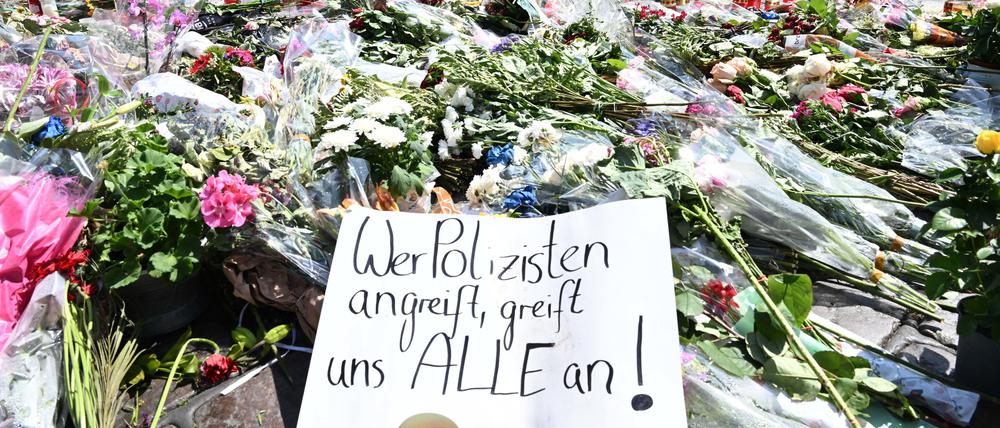 Wer Polizisten
angreift, greift
uns ALLE an!